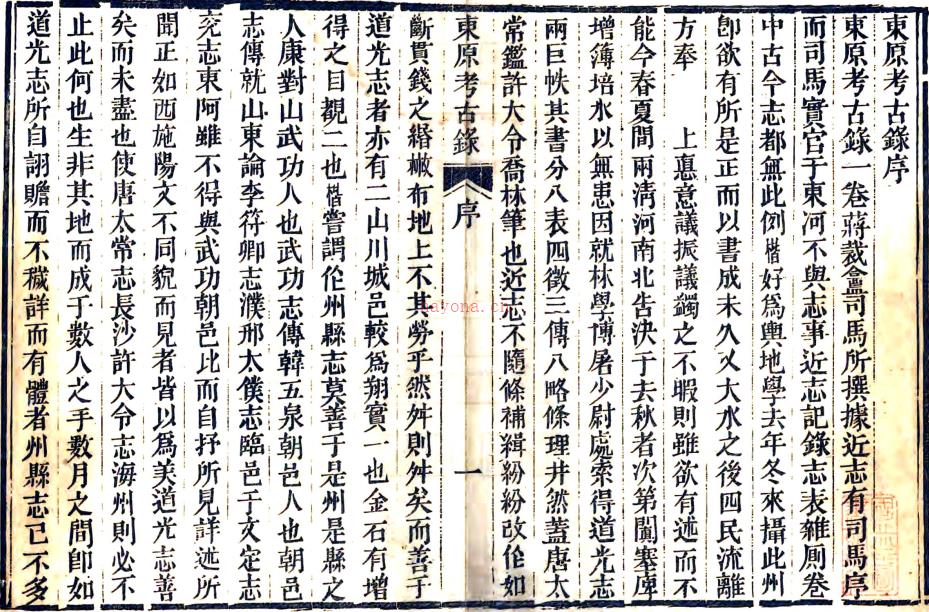 東原考古錄序
東原考古錄一卷蔣裁盦司馬所撰據近志有司馬序
而司馬實官于東河不與志事近志記錄志表雜厠卷
中古今志都無此例楷好爲輿地學去年冬來攝此州
卽欲有所是正而以書成未久又大水之後四民流離
方奉 上悳意議振議蠲之不暇則雖欲有述而不
能今春夏間兩淸河南北告決于去秋者次第闔塞庳
增簿培水以無患因就林學博屠少尉處索得道光志
兩巨帙其書分八表四徵三傳八略條理井然蓋唐太
常鑑許大令喬林筆也近志不隨條補緝紛紛改作如
東原考古錄 序 一
斷貫錢之緡櫢布地上不其勞乎然舛則舛矣而善于
道光志者亦有二山川城邑較爲翔實一也金石有增
得之目覩二也楷嘗謂作州縣志莫善于是州是縣之
人康對山武功人也武功志傳韓五泉朝邑人也朝邑
志傳就山東論李符卿志濮邢太僕志臨邑于文定志
兗志東阿雖不得與武功朝邑比而自抒所見詳述所
聞正如西施陽文不同貌而見者皆以爲美道光志善
矣而未盡也使唐太常志長沙許大令志海州則必不
止此何也生非其地而成于數人之手數月之間卽如
道光志所自詡贍而不穢詳而有體者州縣志已不多